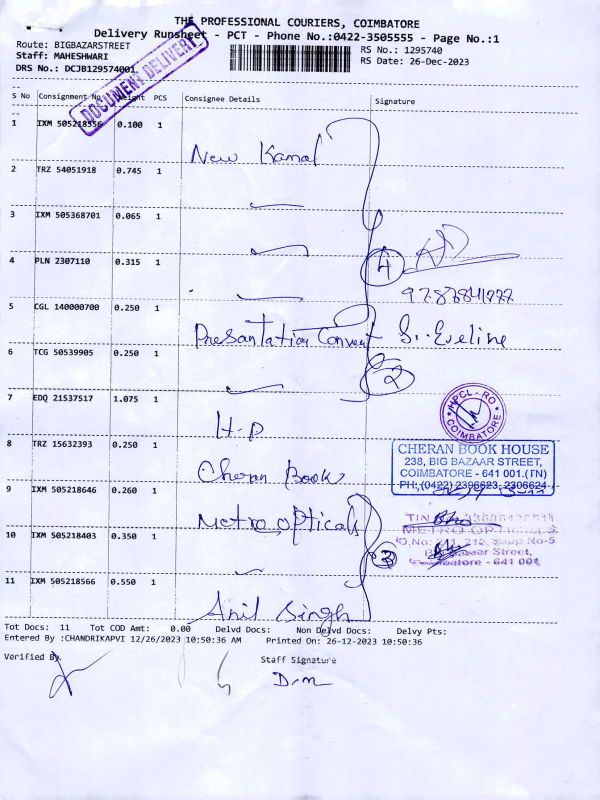 THE PROFESSIONAL COURIERS, COIMBATORE
Delivery Runsheet - PCT - Phone No.:0422-3505555 - Page No.:1
Route: BIGBAZARSTREET
Staff: MAHESHWARI
DRS No.: DCJB129574001
RS No.: 1295740
RS Date: 26-Dec-2023
DOCUMENT DELIVERY
S No Consignment No. Weight PCS Consignee Details Signature
1 IXM 505218556 0.100 1 New Kamal
2 TRZ 54051918 0.745 1
3 IXM 505368701 0.065 1
4 PLN 2307110 0.315 1
4
5 CGL 140000700 0.250 1 Presantation Convent Sr. Eveline
6 TCG 50539905 0.250 1
2
7 EDQ 21537517 1.075 1 H-P
HPCL - RO
COIMBATORE
8 TRZ 15632393 0.250 1 Cheran Book
CHERAN BOOK HOUSE
238, BIG BAZAAR STREET,
COIMBATORE - 641 001.(TN)
PH: (0422) 2396623, 2306624
9 IXM 505218646 0.260 1 Metro opticals
TIN
METRO OPTICALS
10 IXM 505218403 0.350 1
3
Street,
Coimbatore - 641 001
11 IXM 505218566 0.550 1 Anil Singh
Tot Docs: 11 Tot COD Amt: 0.00 Delvd Docs: Non Delvd Docs: Delvy Pts:
Entered By :CHANDRIKAPVI 12/26/2023 10:50:36 AM Printed On: 26-12-2023 10:50:36
Verified By
Staff Signature